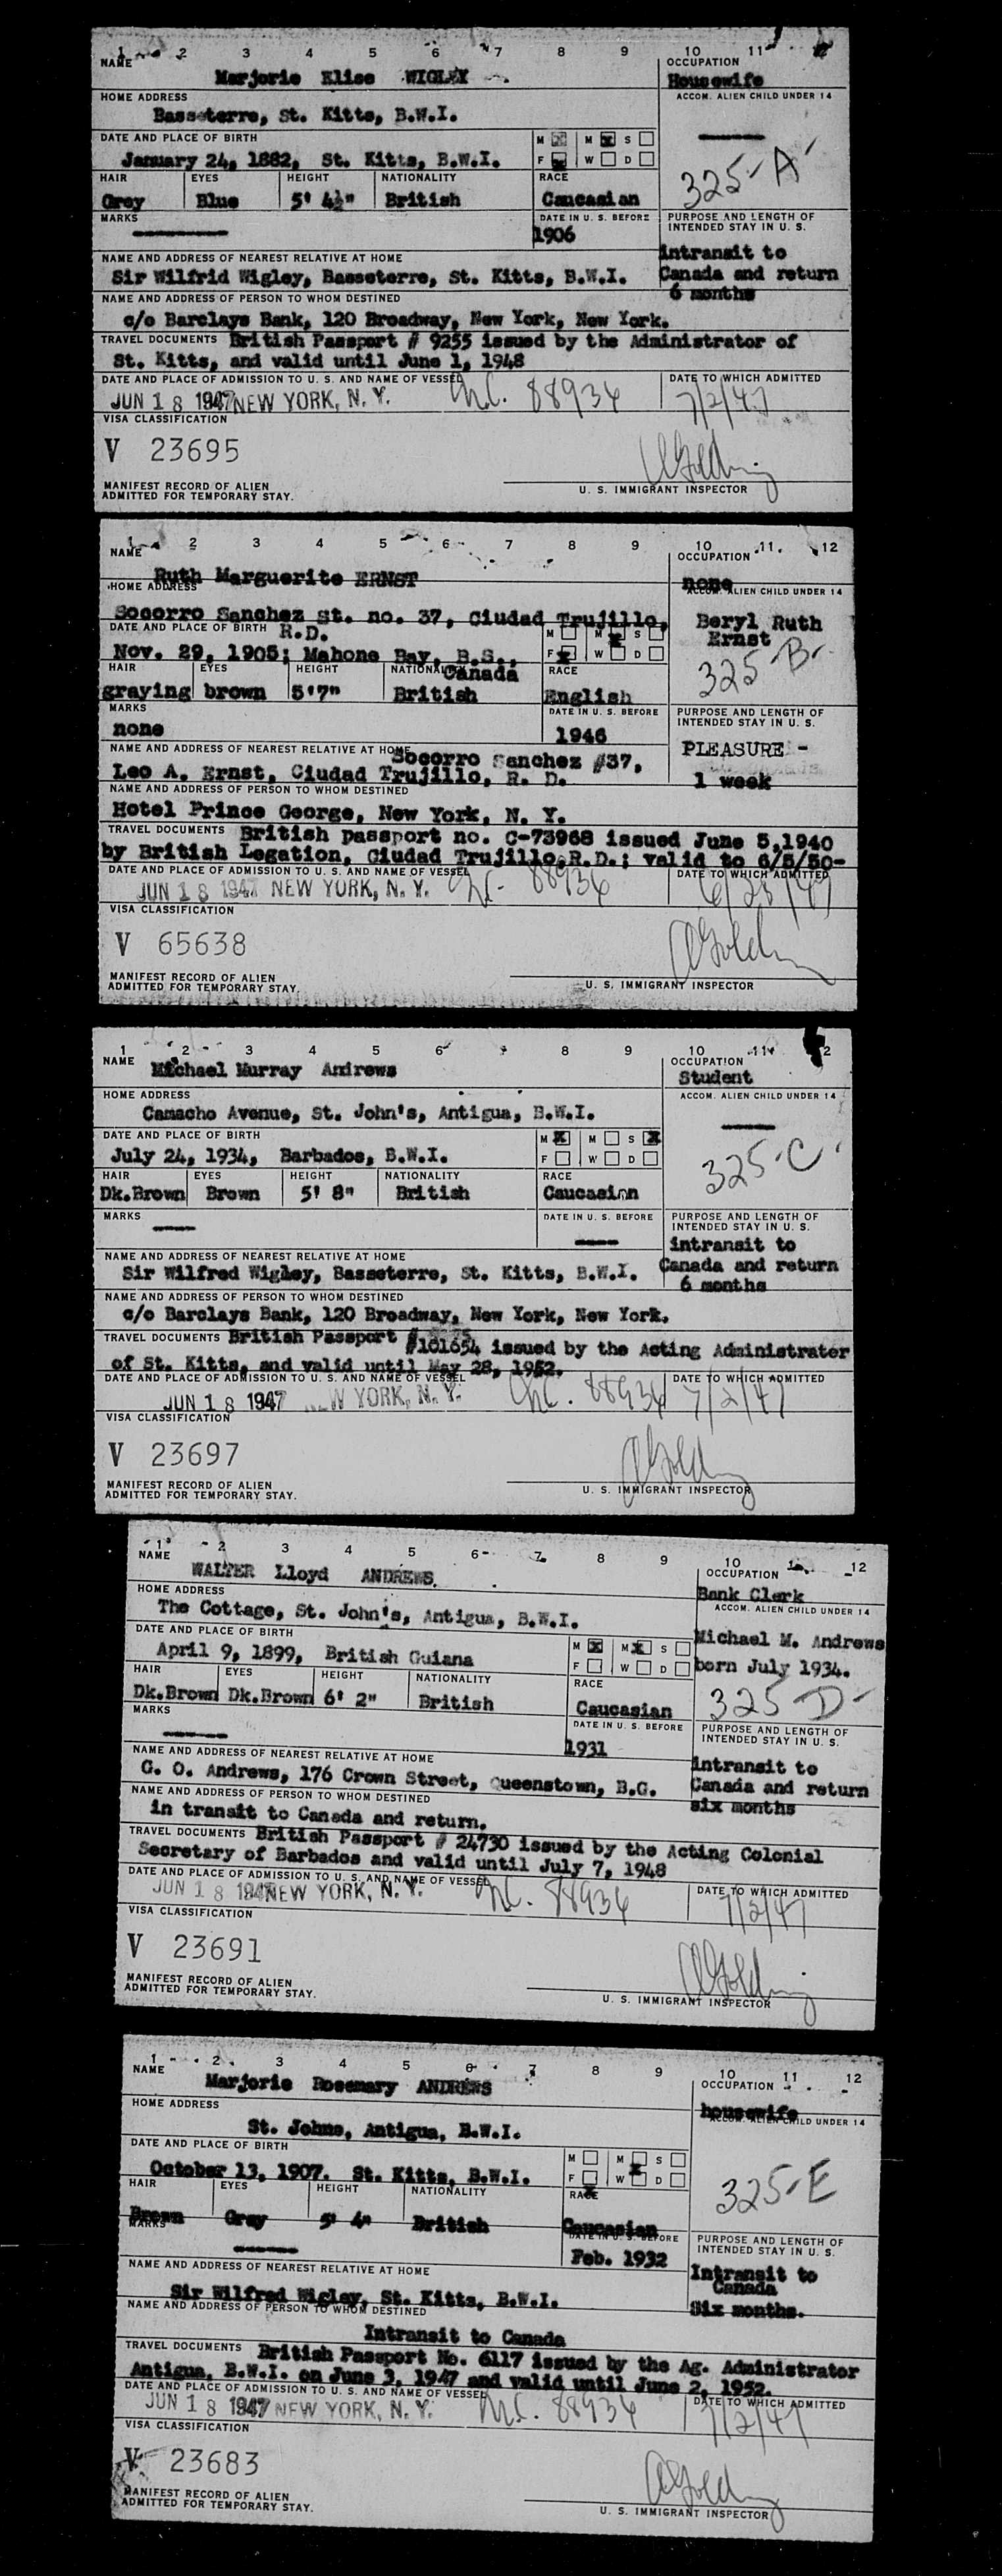 1 2 3 4 5 6 7 8 9 10 11
NAME Marjorie Elise WIGLEY
OCCUPATION Housewife
HOME ADDRESS
Basseterre, St. Kitts, B.W.I.
ACCOM. ALIEN CHILD UNDER 14
DATE AND PLACE OF BIRTH
January 24, 1882, St. Kitts, B.W.I.
M M S
F W D
325-A
HAIR EYES HEIGHT NATIONALITY RACE
Grey Blue 5' 4½" British Caucasian
MARKS
DATE IN U. S. BEFORE
1906
PURPOSE AND LENGTH OF
INTENDED STAY IN U. S.
intransit to
Canada and return
6 months
NAME AND ADDRESS OF NEAREST RELATIVE AT HOME
Sir Wilfrid Wigley, Basseterre, St. Kitts, B.W.I.
NAME AND ADDRESS OF PERSON TO WHOM DESTINED
c/o Barclays Bank, 120 Broadway, New York, New York.
TRAVEL DOCUMENTS British Passport # 9255 issued by the Administrator of
St. Kitts, and valid until June 1, 1948
DATE AND PLACE OF ADMISSION TO U. S. AND NAME OF VESSEL
JUN 18 1947 NEW YORK, N. Y. 88934
DATE TO WHICH ADMITTED
7/2/47
VISA CLASSIFICATION
V 23695
MANIFEST RECORD OF ALIEN
ADMITTED FOR TEMPORARY STAY.
U. S. IMMIGRANT INSPECTOR
1 2 3 4 5 6 7 8 9 10 11 12
NAME Ruth Marguerite ERNST
OCCUPATION none
HOME ADDRESS
Socorro Sanchez St. no. 37, Ciudad Trujillo,
R.D.
ACCOM. ALIEN CHILD UNDER 14
Beryl Ruth
Ernst
DATE AND PLACE OF BIRTH
Nov. 29, 1905; Mahone Bay, B.S.,
Canada
M M S
F W D
325-B
HAIR EYES HEIGHT NATIONALITY RACE
graying brown 5'7" British English
MARKS
none
DATE IN U. S. BEFORE
1946
PURPOSE AND LENGTH OF
INTENDED STAY IN U. S.
PLEASURE -
1 week
NAME AND ADDRESS OF NEAREST RELATIVE AT HOME
Socorro Sanchez #37,
Leo A. Ernst, Ciudad Trujillo, R. D.
NAME AND ADDRESS OF PERSON TO WHOM DESTINED
Hotel Prince George, New York, N. Y.
TRAVEL DOCUMENTS British passport no. C-73968 issued June 5,1940
by British Legation, Ciudad Trujillo,R.D.; valid to 6/5/50-
DATE AND PLACE OF ADMISSION TO U. S. AND NAME OF VESSEL
JUN 18 1947 NEW YORK, N. Y. 88934
DATE TO WHICH ADMITTED
6/25/47
VISA CLASSIFICATION
V 65638
MANIFEST RECORD OF ALIEN
ADMITTED FOR TEMPORARY STAY.
U. S. IMMIGRANT INSPECTOR
1 2 3 4 5 6 7 8 9 10 11 12
NAME Michael Murray Andrews
OCCUPATION
Student
HOME ADDRESS
Camacho Avenue, St. John's, Antigua, B.W.I.
ACCOM. ALIEN CHILD UNDER 14
DATE AND PLACE OF BIRTH
July 24, 1934, Barbados, B.W.I.
M M S
F W D
325-C
HAIR EYES HEIGHT NATIONALITY RACE
Dk.Brown Brown 5' 8" British Caucasian
MARKS
DATE IN U. S. BEFORE
PURPOSE AND LENGTH OF
INTENDED STAY IN U. S.
intransit to
Canada and return
6 months
NAME AND ADDRESS OF NEAREST RELATIVE AT HOME
Sir Wilfred Wigley, Basseterre, St. Kitts, B.W.I.
NAME AND ADDRESS OF PERSON TO WHOM DESTINED
c/o Barclays Bank, 120 Broadway, New York, New York.
TRAVEL DOCUMENTS British Passport #101654 issued by the Acting Administrater
of St. Kitts, and valid until May 28, 1952.
DATE AND PLACE OF ADMISSION TO U. S. AND NAME OF VESSEL
JUN 18 1947 W YORK, N. Y. 88934
DATE TO WHICH ADMITTED
7/2/47
VISA CLASSIFICATION
V 23697
MANIFEST RECORD OF ALIEN
ADMITTED FOR TEMPORARY STAY.
U. S. IMMIGRANT INSPECTOR
1 2 3 4 5 6 7 8 9 10 12
NAME WALTER Lloyd ANDREWS
OCCUPATION
Bank Clerk
HOME ADDRESS
The Cottage, St. John's, Antigua, B.W.I.
ACCOM. ALIEN CHILD UNDER 14
Michael M. Andrews
born July 1934.
DATE AND PLACE OF BIRTH
April 9, 1899, British Guiana
M M S
F W D
325 D-
HAIR EYES HEIGHT NATIONALITY RACE
Dk.Brown Dk.Brown 6' 2" British Caucasian
MARKS
DATE IN U. S. BEFORE
1931
PURPOSE AND LENGTH OF
INTENDED STAY IN U. S.
intransit to
Canada and return
six months
NAME AND ADDRESS OF NEAREST RELATIVE AT HOME
G. O. Andrews, 176 Crown Street, Queenstown, B.G.
NAME AND ADDRESS OF PERSON TO WHOM DESTINED
in transit to Canada and return.
TRAVEL DOCUMENTS British Passport # 24730 issued by the Acting Colonial
Secretary of Barbados and valid until July 7, 1948
DATE AND PLACE OF ADMISSION TO U. S. AND NAME OF VESSEL
JUN 18 1947 NEW YORK, N. Y. 88934
DATE TO WHICH ADMITTED
7/2/47
VISA CLASSIFICATION
V 23691
MANIFEST RECORD OF ALIEN
ADMITTED FOR TEMPORARY STAY.
U. S. IMMIGRANT INSPECTOR
1 2 3 4 5 6 7 8 9 10 11 12
NAME Marjorie Rosemary ANDREWS
OCCUPATION
housewife
HOME ADDRESS
St. Johns, Antigua, B.W.I.
ACCOM. ALIEN CHILD UNDER 14
DATE AND PLACE OF BIRTH
October 13, 1907. St. Kitts, B.W.I.
M M S
F W D
325-E
HAIR EYES HEIGHT NATIONALITY RACE
Brown Gray 5' 4" British Caucasian
MARKS
DATE IN U. S. BEFORE
Feb. 1932
PURPOSE AND LENGTH OF
INTENDED STAY IN U. S.
Intransit to
Canada
Six months.
NAME AND ADDRESS OF NEAREST RELATIVE AT HOME
Sir Wilfred Wigley, St. Kitts, B.W.I.
NAME AND ADDRESS OF PERSON TO WHOM DESTINED
Intransit to Canada
TRAVEL DOCUMENTS British Passport No. 6117 issued by the Ag. Administrator
Antigua, B.W.I. on June 3, 1947 and valid until June 2, 1952.
DATE AND PLACE OF ADMISSION TO U. S. AND NAME OF VESSEL
JUN 18 1947 NEW YORK, N. Y. 88934
DATE TO WHICH ADMITTED
7/2/47
VISA CLASSIFICATION
V 23683
MANIFEST RECORD OF ALIEN
ADMITTED FOR TEMPORARY STAY.
U. S. IMMIGRANT INSPECTOR